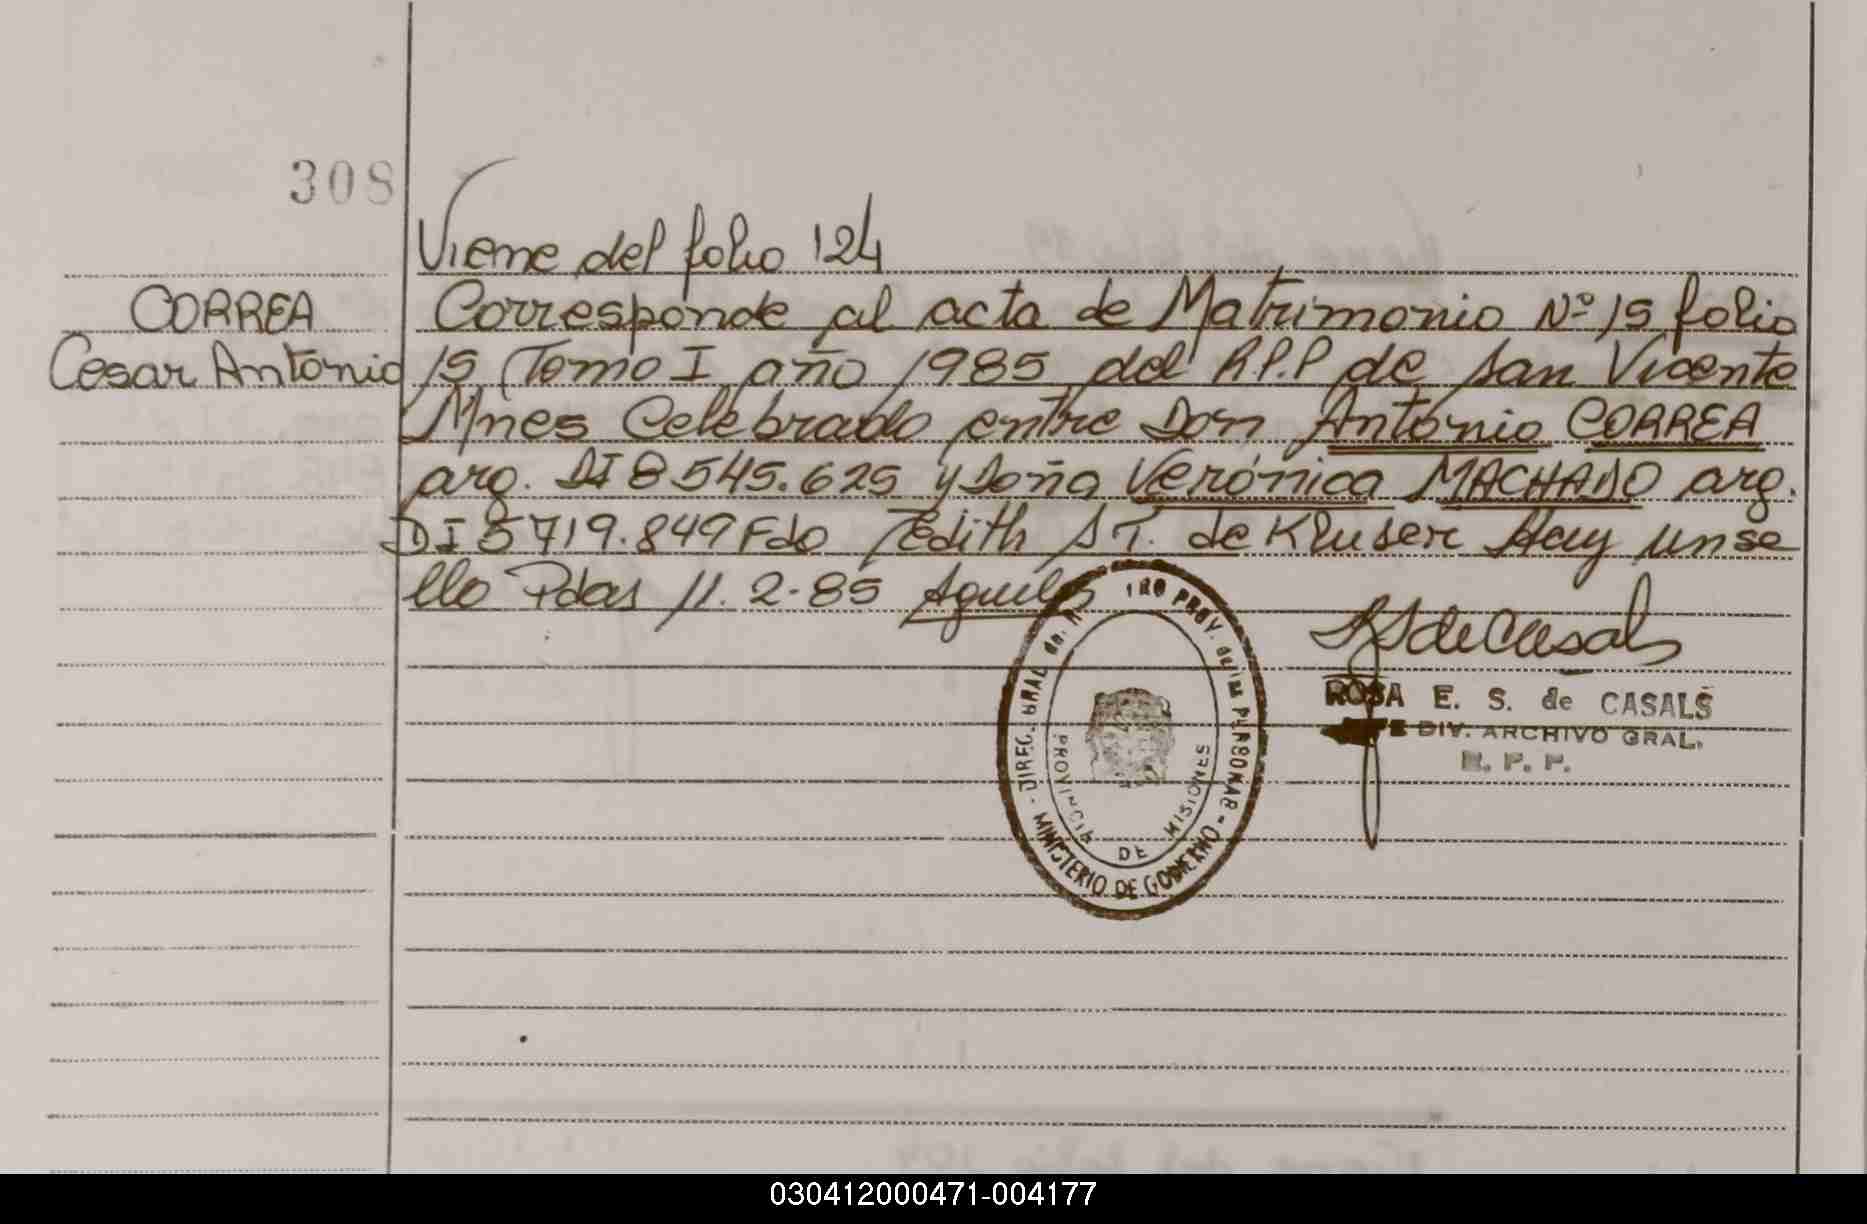 308
Viene del folio 124
CORREA
Cesar Antonio
Corresponde al acta de Matrimonio Nº 15 folio
15 Tomo I año 1985 del R.P.P de San Vicente
Mnes Celebrado entre Don Antonio CORREA
arg. DI 8545.625 y Doña Verónica MACHADO arg.
DI 5719.849 Fdo Edith S T. de Kluser Hay un se
llo Pdas 11.2-85 Aguilo
S de Casals
ROSA E. S. de CASALS
DIV. ARCHIVO GRAL.
R. P. P.
DIREC. GRAL. PROV. PERSONAS
MINISTERIO DE GOBIERNO
PROVINCIA DE MISIONES
030412000471-004177